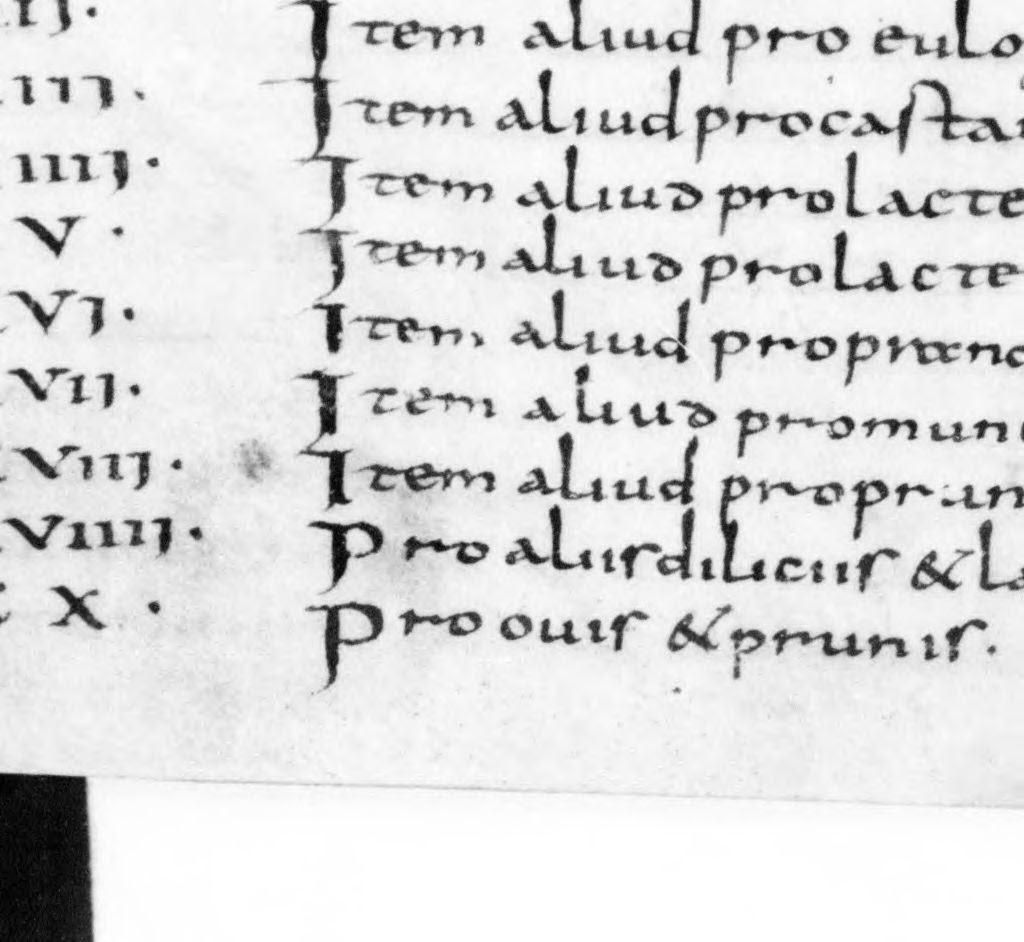 II. Item aliud pro eulo
III. Item aliud pro castan
IIII. Item aliud pro lacte
V. Item aliud pro lacte
VI. Item aliud pro
VII. Item aliud pro mun
VIII. Item aliud pro
VIIII. Pro aliis diliciis & la
X. Pro ovis & prunis.